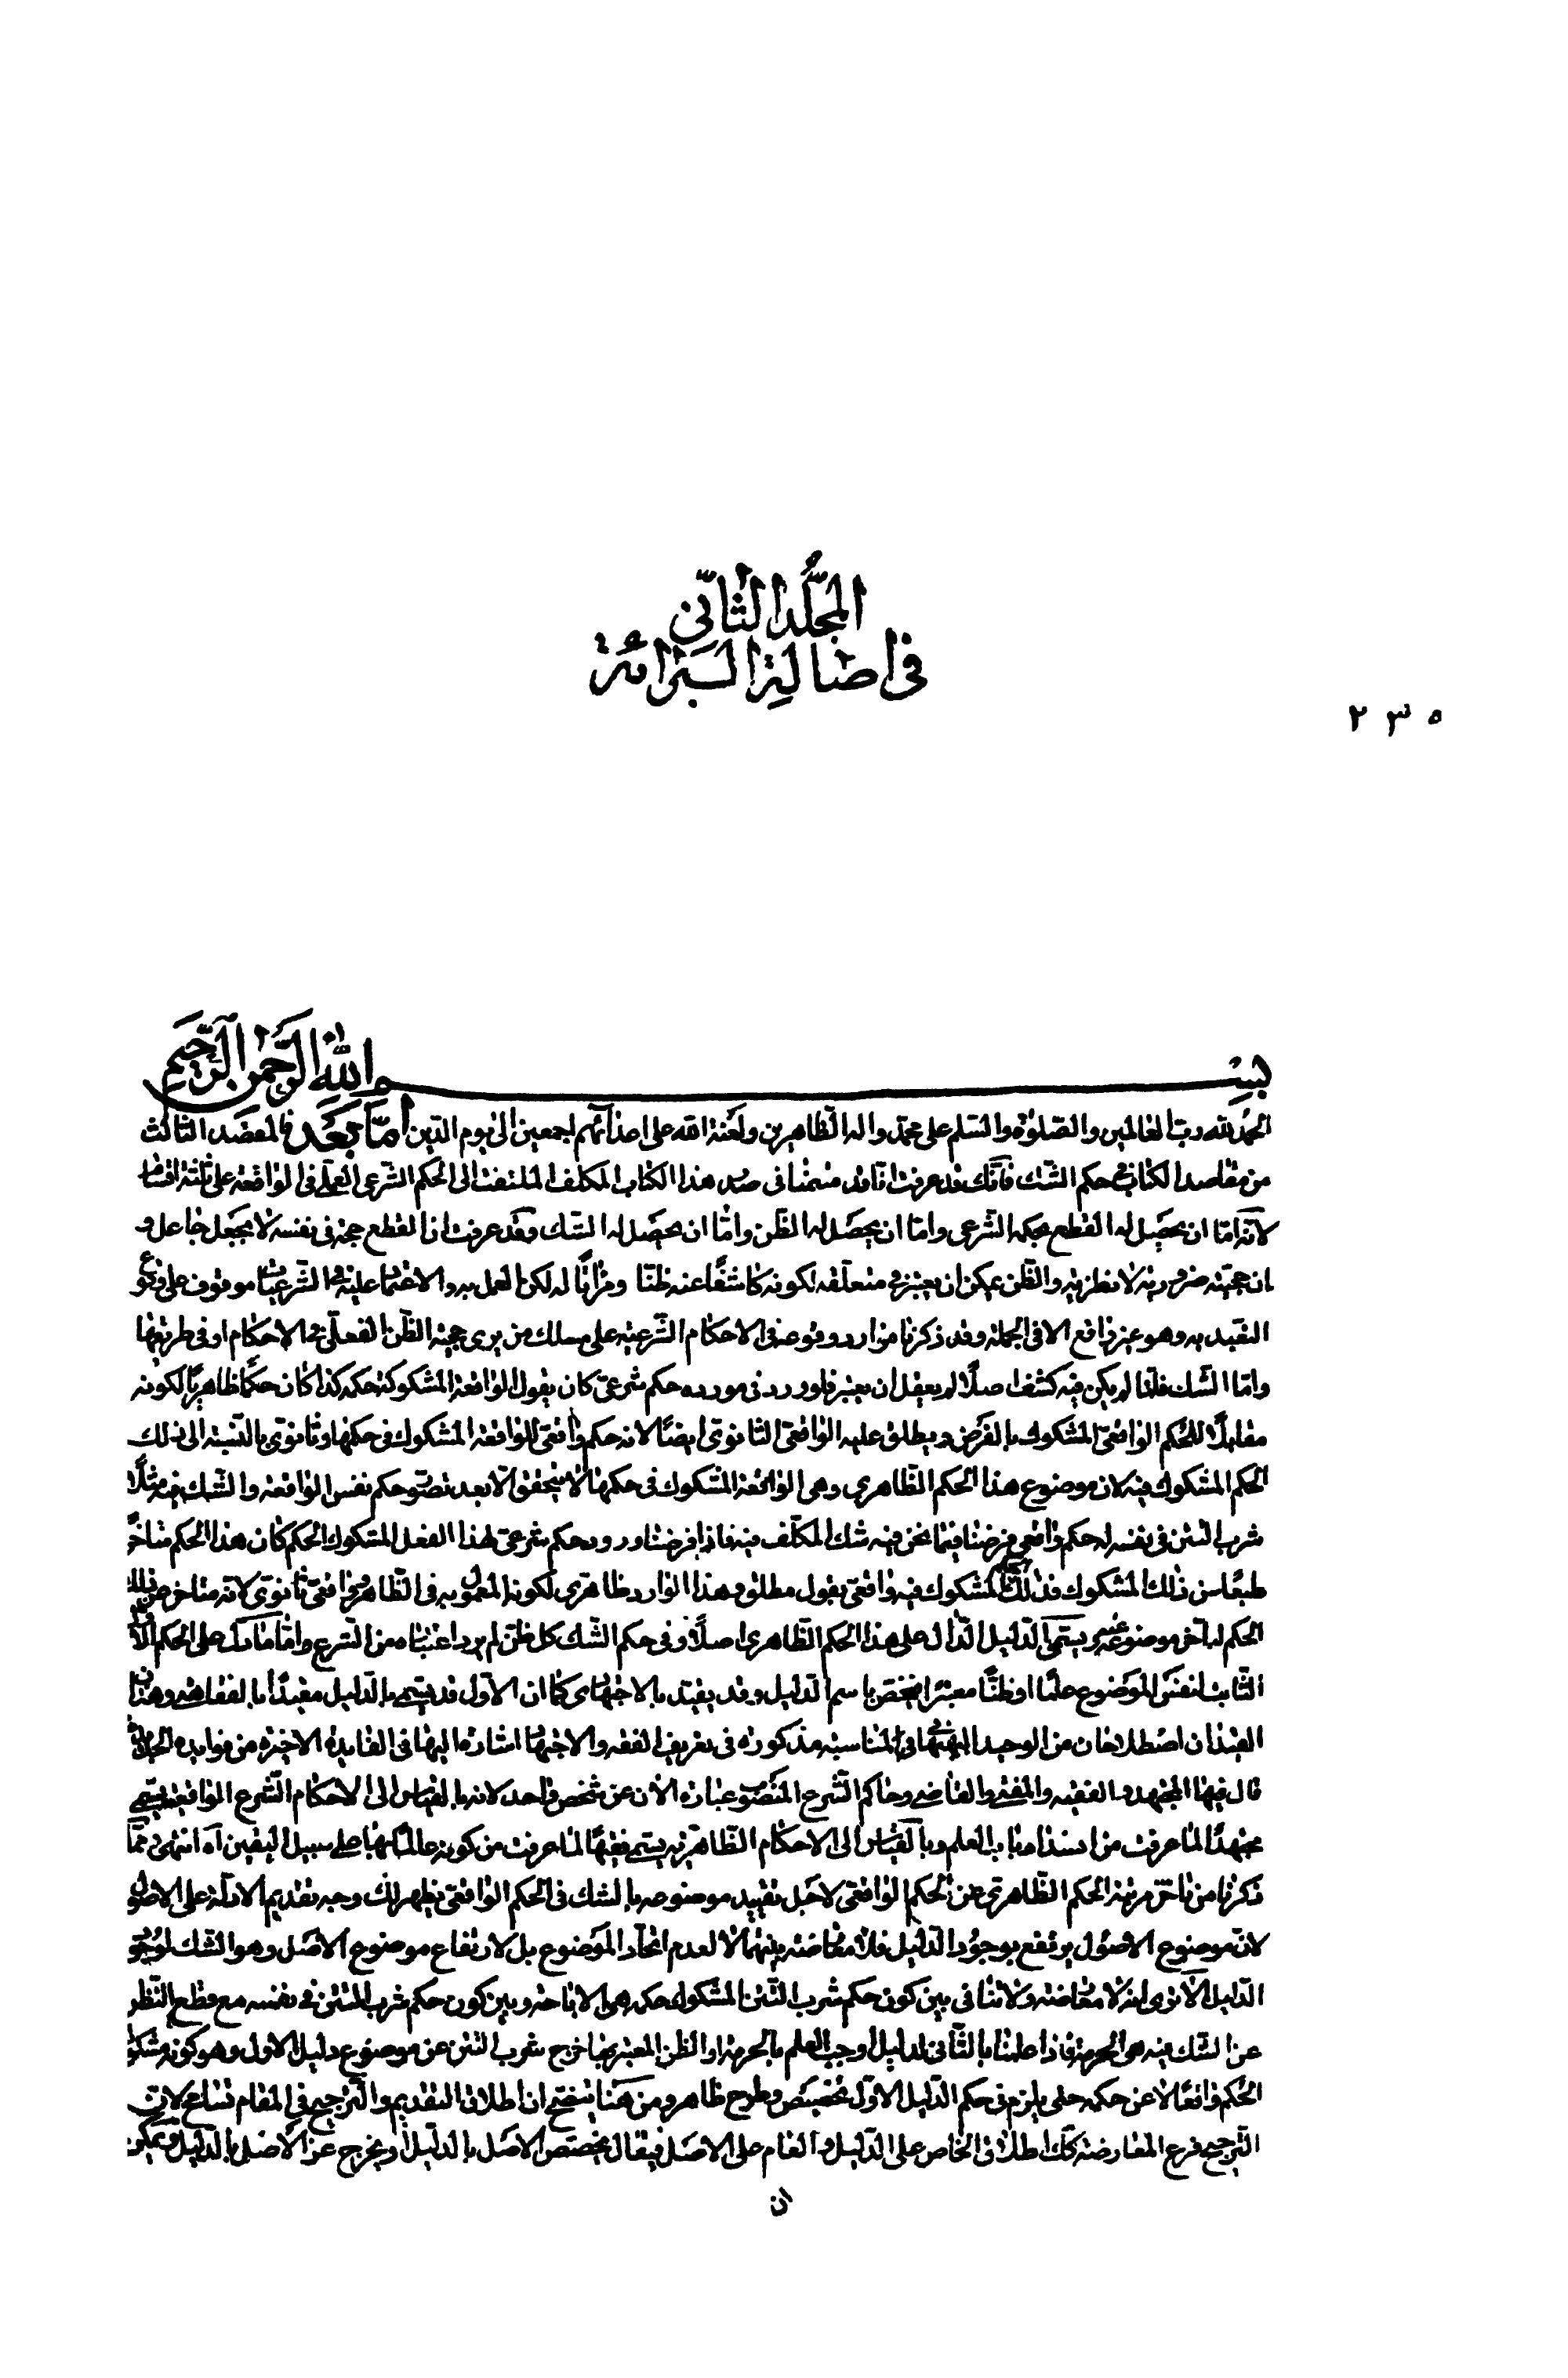 المجلد الثاني
في اصالة البرائة
٢٣٥
بسم الله الرحمن الرحيم
الحمد لله رب العالمين والصلوة والسلم على محمد واله الطاهرين ولعنة الله على اعدائهم اجمعين الى يوم الدين اما بعد فالمقصد الثالث
من مقاصد الكتاب في حكم الشك فانك قد عرفت انا قد قسمنا في صدر هذا الكتاب المكلف الملتفت الى الحكم الشرعي العملي في الواقعة على ثلثة اقسام
لانه اما ان يحصل له القطع بحكمه الشرعي واما ان يحصل له الظن واما ان يحصل له الشك وقد عرفت ان القطع حجة في نفسه لا بجعل جاعل و
ان حجيته ضرورية لا نظرية والظن يمكن ان يعتبر في متعلقه لكونه كاشفا عنه ظنا ومراتا له لكن العمل به والاعتماد عليه في الشرعيات موقوف على وقوع
التعبد به وهو غير واقع الا في الجملة وقد ذكرنا موارد وقوعه في الاحكام الشرعية على مسلك من يرى حجية الظن الفعلي في الاحكام او في طريقها
واما الشك فلما لم يكن فيه كشف اصلا لم يعقل ان يعتبر فلو ورد في مورده حكم شرعي كان يقول الواقعة المشكوكة حكمه كذا كان حكما ظاهريا لكونه
مقابلا للحكم الواقعي المشكوك بالفرض ويطلق عليه الواقعي الثانوي ايضا لانه حكم واقعي للواقعة المشكوك في حكمها وثانوي بالنسبة الى ذلك
الحكم المشكوك فيه لان موضوع هذا الحكم الظاهري وهي الواقعة المشكوك في حكمها لا يتحقق الا بعد تصور حكم نفس الواقعة والشك فيه مثلا
شرب التتن في نفسه له حكم واقعي فرضنا فيما نحن فيه شك المكلف فيه فاذا فرضنا ورود حكم شرعي لهذا الفعل المشكوك الحكم كان هذا الحكم متاخرا
طبعا من ذلك المشكوك فذلك الحكم المشكوك فيه واقعي بقول مطلق وهذا الوارد ظاهري لكونه المعمول به في الظاهر وواقعي ثانوي لانه متاخر عن ذلك
الحكم لتاخر موضوعه عنه ويسمى الدليل الدال على هذا الحكم الظاهري اصلا وفي حكم الشك كل ظن لم يرد اعتباره من الشرع واما ما دل على الحكم الاول
الثابت لنفس الموضوع علما او ظنا معتبرا فيختص باسم الدليل وقد يقيد بالاجتهادي كما ان الاول قد يسمى بالدليل مقيدا بالفقاهتي وهذان
القيدان اصطلاحان من الوحيد البهبهاني لمناسبة مذكورة في تعريف الفقه والاجتهاد اشارة اليها في الفايدة الاخيرة من فوايده الجديدة
قال فيها المجتهد والفقيه والمفتي والقاضي وحاكم الشرع المنصوب عبارة الان عن شخص واحد لانه بالقياس الى الاحكام الشرع الواقعية يسمى
مجتهدا لما عرفت من انسداد باب العلم وبالقياس الى الاحكام الظاهرية يسمى فقيها لما عرفت من كونه عالما بها على سبيل اليقين اه انتهى ومما
ذكرنا من تاخر مرتبة الحكم الظاهري عن الحكم الواقعي لاجل تقييد موضوعه بالشك في الحكم الواقعي يظهر لك وجه تقديم الادلة على الاصول
لان موضوع الاصول يرتفع بوجود الدليل فلا معارضة بينهما لا لعدم اتحاد الموضوع بل لارتفاع موضوع الاصل وهو الشك لوجود
الدليل الا ترى انه لا معارضة ولا تنافي بين كون حكم شرب التتن المشكوك حكمه هي الاباحة وبين كون حكم شرب التتن في نفسه مع قطع النظر
عن الشك فيه هي الحرمة فاذا علمنا بالثاني لدليل اوجب العلم بالحرمة او الظن المعتبر بها خرج شرب التتن عن موضوع دليل الاول وهو كونه مشكوك
الحكم واقعا لا عن حكمه حتى يلزم في حكم الدليل الاول تخصيص وطرح ظاهر ومن هنا يتضح ان اطلاق التقديم والترجيح في المقام تسامح لان
الترجيح فرع المعارضة كك اطلاق الخاص على الدليل والعام على الاصل فيقال يخصص الاصل بالدليل او يخرج عن الاصل بالدليل ويمكن
ان